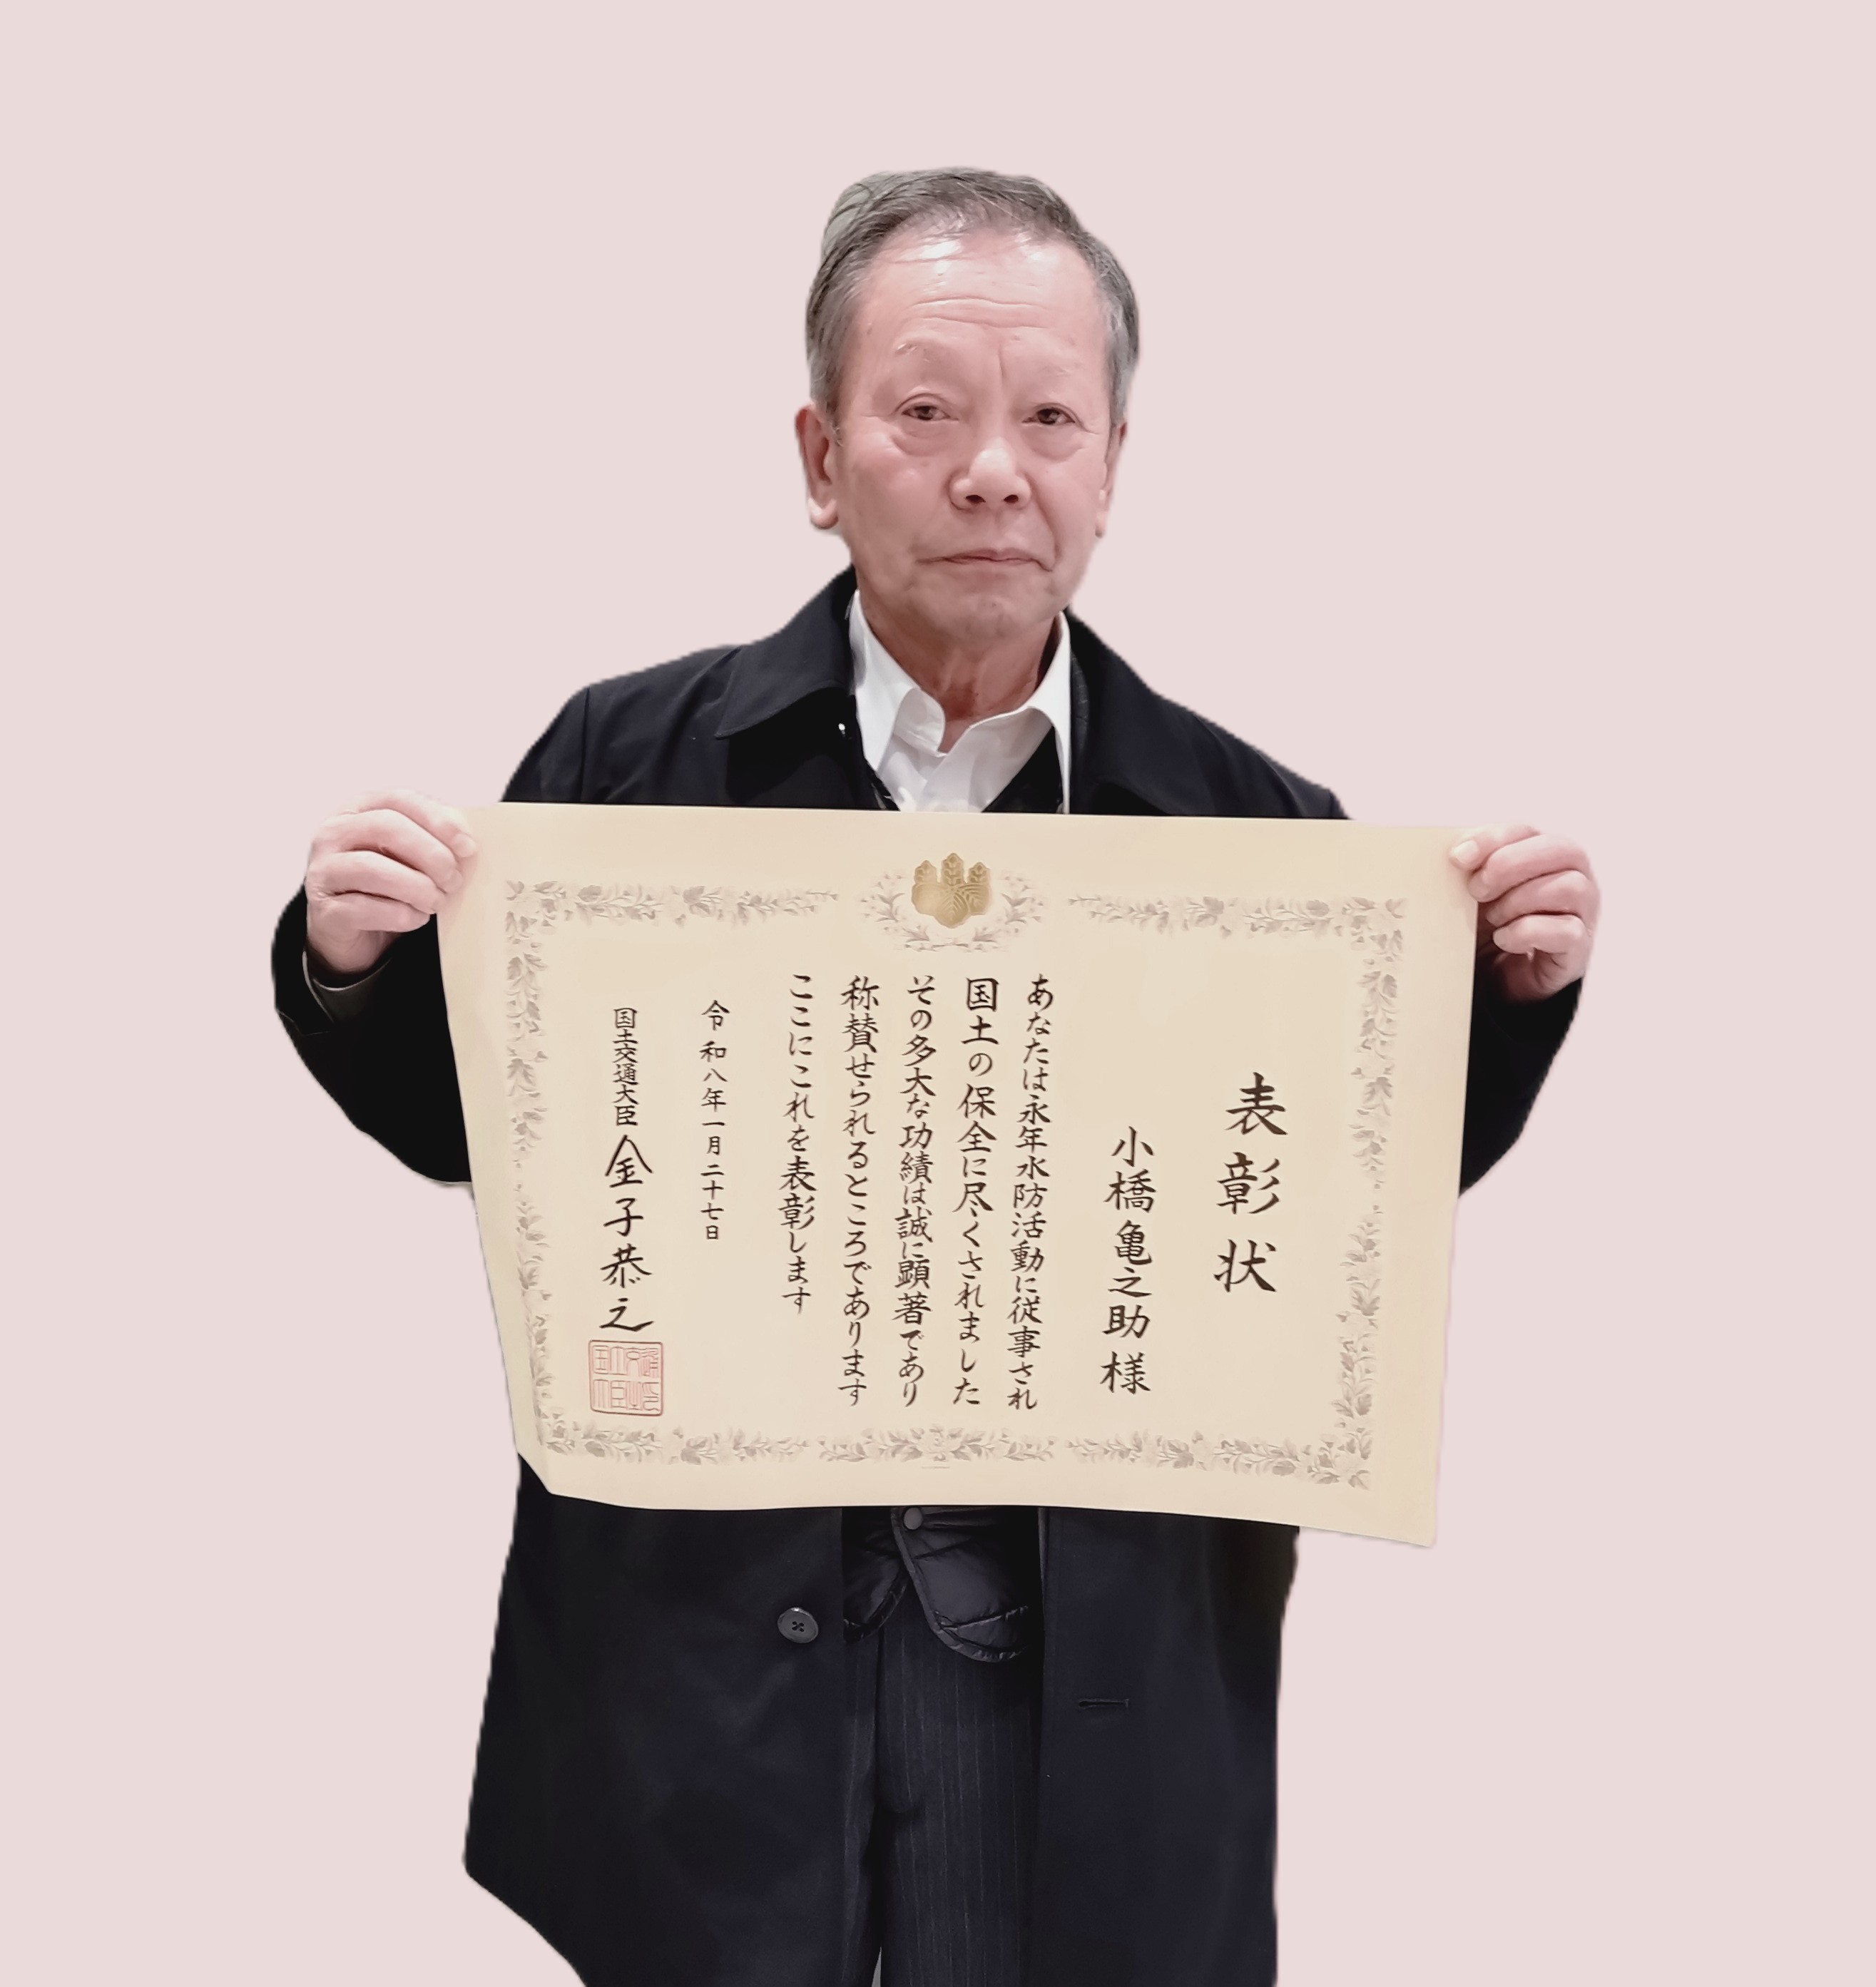 表彰状
小橋亀之助様
あなたは永年水防活動に従事され
国土の保全に尽くされました
その多大な功績は誠に顕著であり
称賛せられるところであります
ここにこれを表彰します
令和八年一月二十七日
国土交通大臣 金子恭之